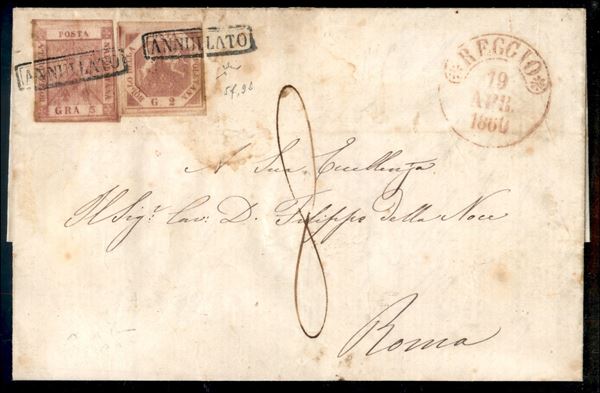 POSTA
GRA 5
ANNULLATO
G 2
ANNULLATO
REGGIO
19
APR.
1860
8
A Sua Eccellenza
Il Sigr. Cav. D. Filippo della Noce
Roma